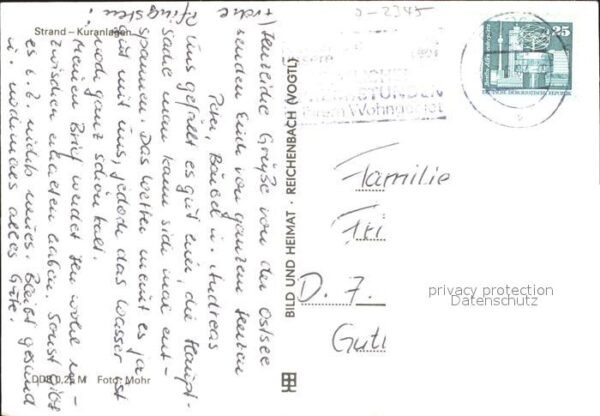 Strand – Kuranlagen
Herzliche Grüße von der Ostsee
senden Euch von ganzem Herzen
Peter, Bärbel u. Andreas
Uns gefällt es gut hier, die Haupt-
sache man kann sich mal ent-
spannen. Das Wetter meint es ja
gut mit uns, jedoch das Wasser ist
noch ganz schön kalt.
Meinen Brief werdet Ihr wohl in-
zwischen erhalten haben. Sonst gibt
es z. B. nichts neues. Bleibt gesund
u. nochmals alles Gute.
Frohe
Pfingsten!
DDR 0,25 M Foto: Mohr
BILD UND HEIMAT · REICHENBACH (VOGTL)
0-2345
STUNDEN
Wohngebiet
25
DEUTSCHE DEMOKRATISCHE REPUBLIK
Familie
D. 7.
privacy protection
Datenschutz